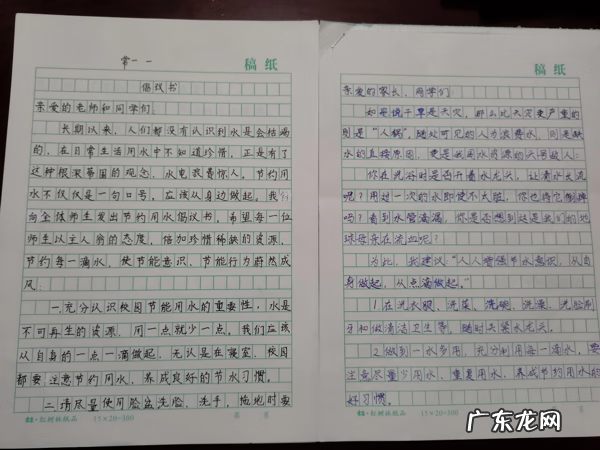 常一一
稿纸
倡议书
亲爱的老师和同学们:
长期以来,人们都没有认识到水是会枯竭
的,在日常生活用水中不知道珍惜,正是有了
这种根深蒂固的观念,水电浪费惊人,节约用
水不仅仅是一句口号,应该从身边做起。我
向全体师生发出节约用水倡议书,希望每一位
师生以主人翁的态度,倍加珍惜稀缺的资源,
节约每一滴水,使节能意识、节能行为蔚然成
风。
一.充分认识校园节能用水的重要性,水是
不可再生的资源,用一点就少一点。我们应该
从自身的一点一滴做起,无认是在寝室、校园
都要注意节约用水,养成良好的节水习惯。
二.请尽量使用脸盆洗脸、洗手,拖地时要
红树林纸品 15×20=300 第 页
稿纸
亲爱的家长、同学们:
如果说干旱是天灾,那么比天灾更严重的
则是“人祸”,随处可见的人为浪费水,则是缺
水的直接原因,更是我国水资源的头号敌人:
你在洗浴时是否开着水龙头,让清水长流
呢?用过一次的水即使不太脏,你也将它倒掉
吗?看到水管滴漏,你是否想到这是我们的地
球母亲在流血呢?
为此,我建议“人人增强节水意识,从自
身做起,从点滴做起。”
1.在洗衣服、洗菜、洗碗、洗澡、洗脸刷
牙和做清洁卫生等,随时关紧水龙头。
2.做到一水多用,充分利用每一滴水,要
注意尽量少用水、重复用水,养成节约用水的
好习惯。
红树林纸品 15×20=300
广东龙网